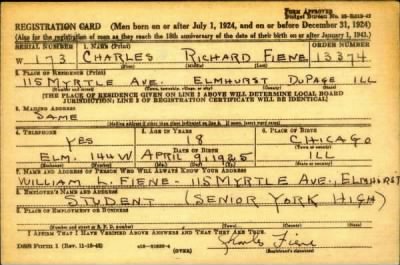 FORM APPROVED
REGISTRATION CARD (Men born on or after July 1, 1924, and on or before December 31, 1924)
(Also for the registration of men as they reach the 18th anniversary of the date of their birth on or after January 1, 1943.)
SERIAL NUMBER 1. NAME (Print) ORDER NUMBER
W 173 CHARLES RICHARD FIENE 13374
(First) (Middle) (Last)
2. PLACE OF RESIDENCE (Print)
115 MYRTLE AVE. ELMHURST DUPAGE ILL
[THE PLACE OF RESIDENCE GIVEN ON LINE 2 ABOVE WILL DETERMINE LOCAL BOARD
JURISDICTION; LINE 2 OF REGISTRATION CERTIFICATE WILL BE IDENTICAL]
3. MAILING ADDRESS
SAME
4. TELEPHONE 5. AGE IN YEARS 6. PLACE OF BIRTH
YES 18 CHICAGO
DATE OF BIRTH
ELM. 144W APRIL 9, 1925 ILL
(Exchange) (Number) (Mo.) (Day) (Yr.)
7. NAME AND ADDRESS OF PERSON WHO WILL ALWAYS KNOW YOUR ADDRESS
WILLIAM L. FIENE - 115 MYRTLE AVE., ELMHURST
8. EMPLOYER'S NAME AND ADDRESS
STUDENT (SENIOR YORK HIGH)
9. PLACE OF EMPLOYMENT OR BUSINESS
I AFFIRM THAT I HAVE VERIFIED ABOVE ANSWERS AND THAT THEY ARE TRUE.
DSS Form 1 (OVER) Charles Fiene
(Registrant's signature)